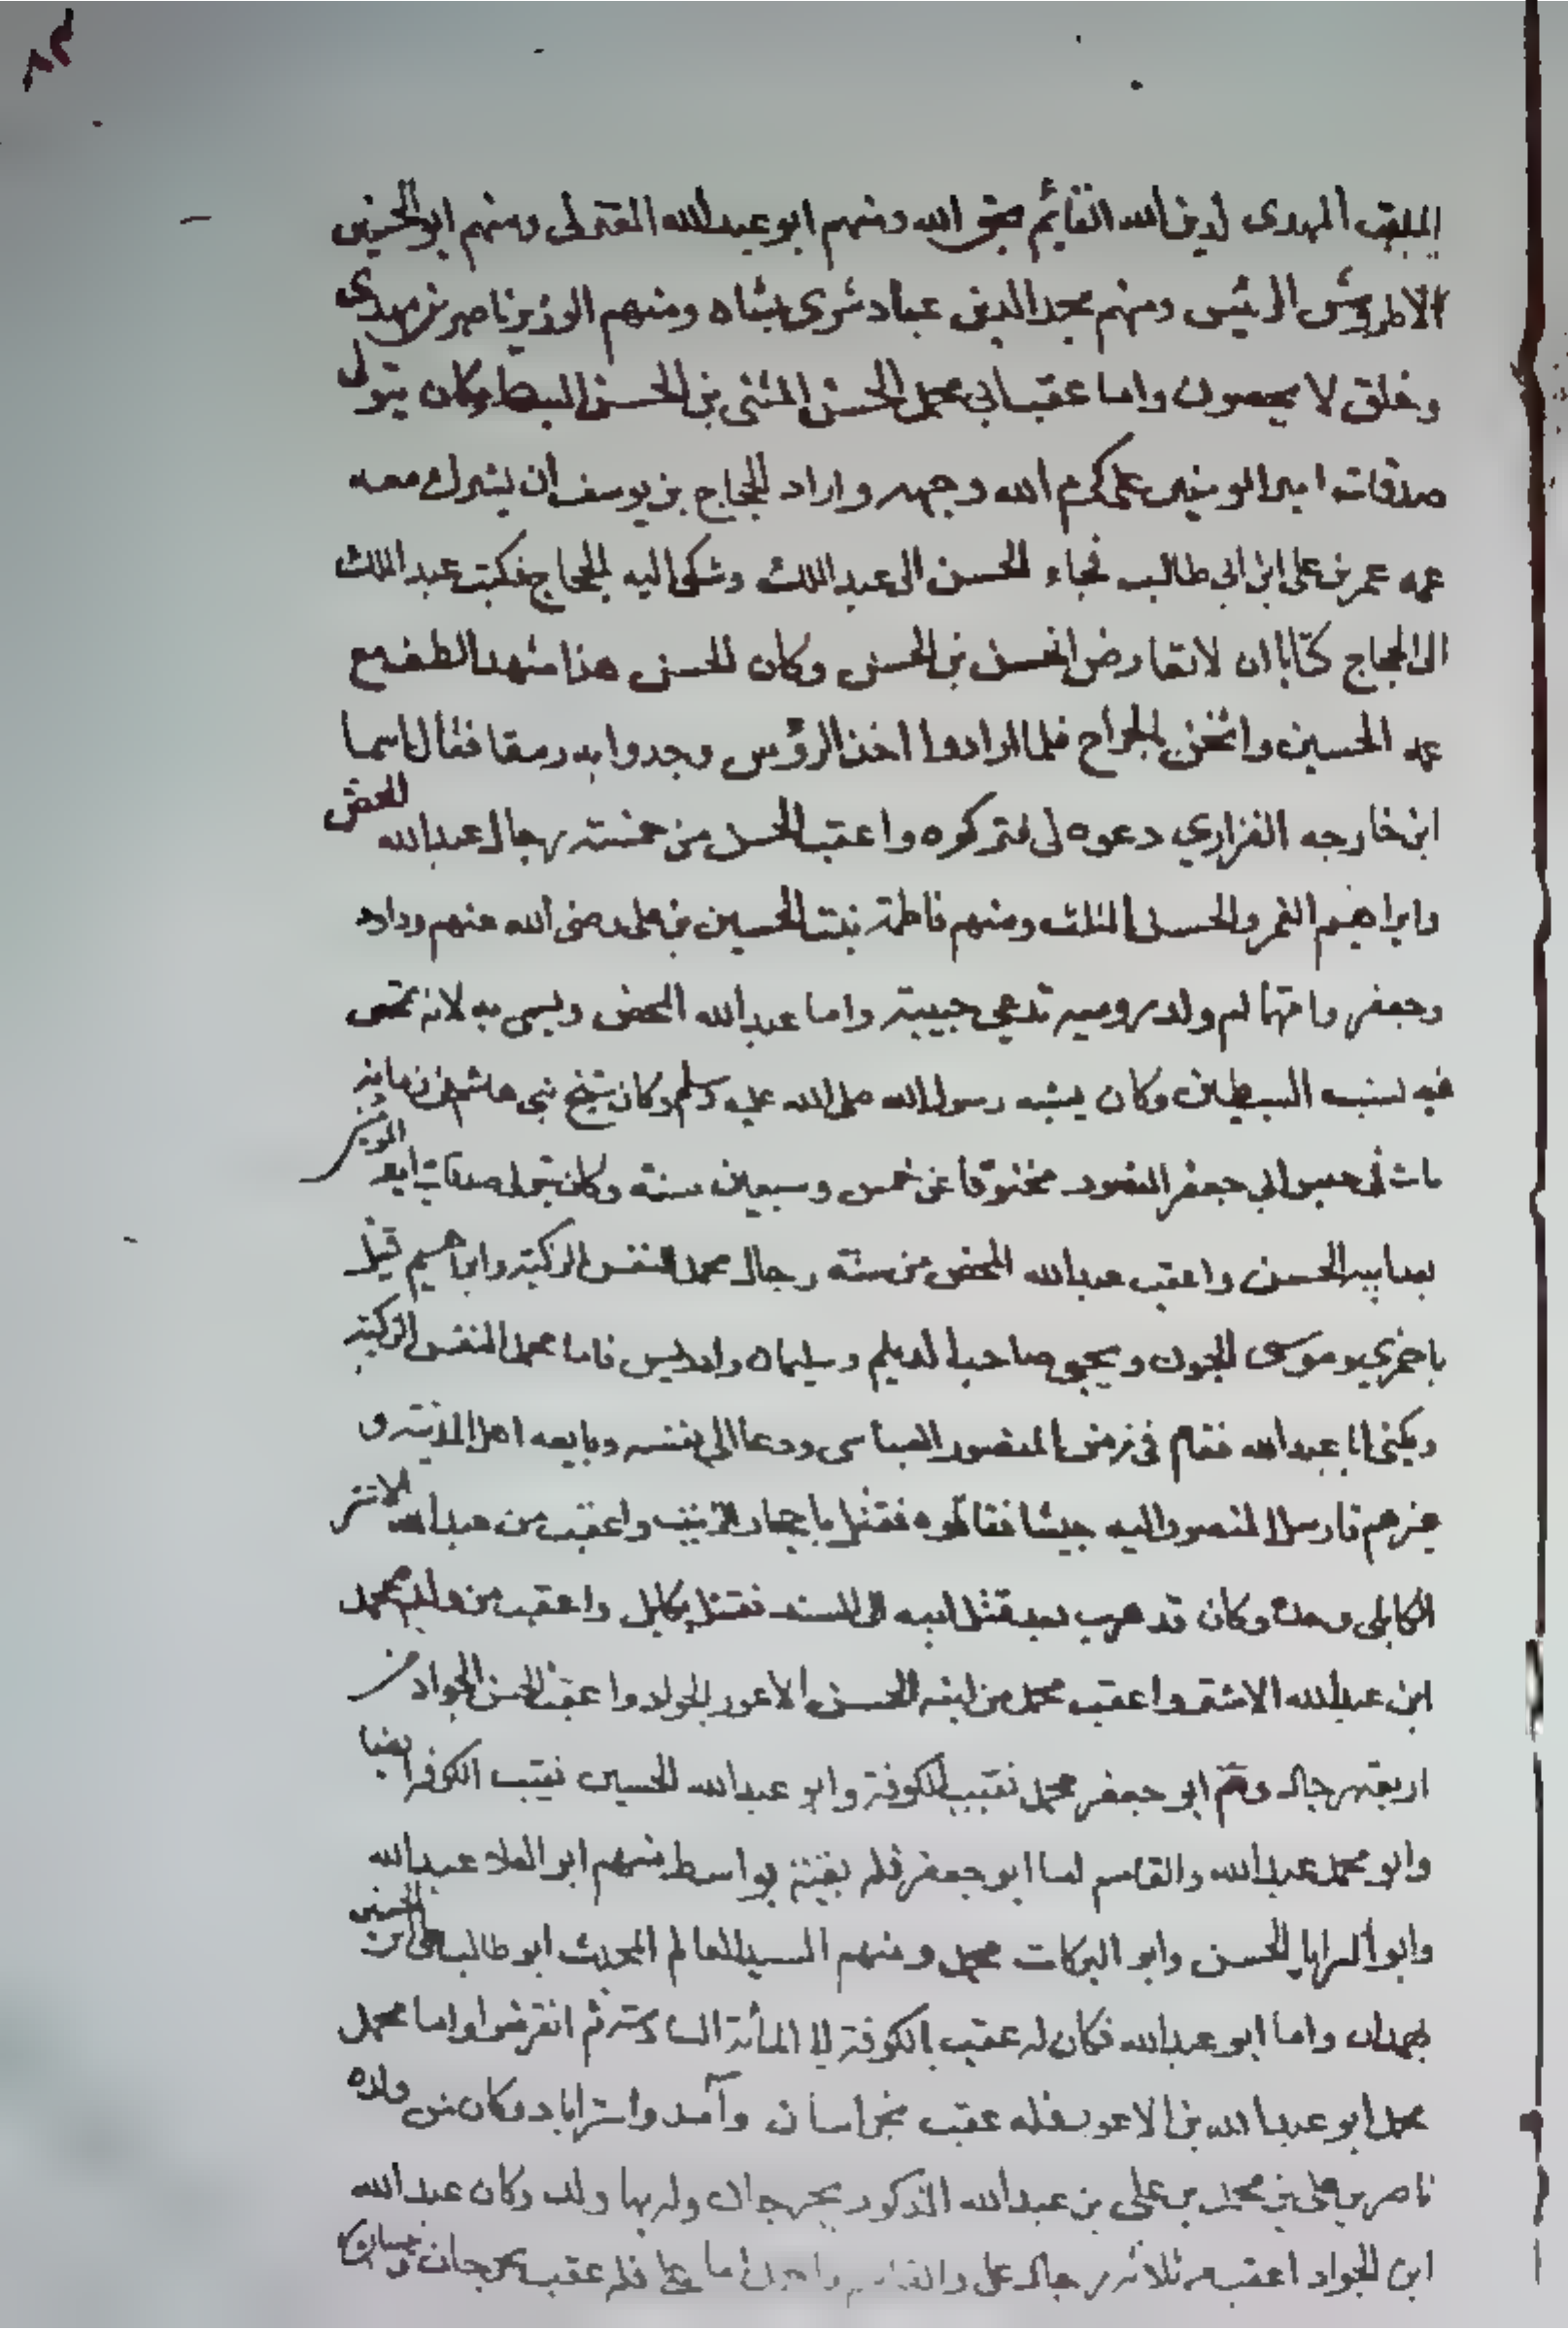 ٨٣
الملقب المهدى لدين الله القائم بحق الله ومنهم ابو عبد الله المقترلى ومنهم ابو الحسين
الرئيس ومنهم مجد الدين عباد شرى بشاه ومنهم الوزير ناصر بن مهدى
وخلق لا يحصون واما عقب ابى محمد الحسن المثنى بن الحسن السبط وكان يتولى
صدقات امير المومنين على كرم الله وجهه واراد الحجاج بن يوسف ان يشرك معه
عمه عمر بن على ابن ابى طالب فجاء الحسن الى عبد الملك وشكى اليه الحجاج فكتب عبد الملك
الى الحجاج كتابا ان لا تعارض الحسن بن الحسن وكان الحسن هذا شهد الطف مع
عمه الحسين واثخن بالجراح فلما ارادوا اخذ الرؤس وجدوا به رمقا فقال اسما
ابن خارجه الفزارى دعوه لى فتركوه واعقب الحسن من خمسة رجال عبد الله المحض
وابراهيم الغمر والحسن المثلث ومنهم فاطمة بنت الحسين بن على رضى الله عنهم وداود
وجعفر وامهما ام ولد روميه تدعى حبيبة واما عبد الله المحض ويسمى به لانه تمحض
فيه نسب السبطين وكان يشبه رسول الله صلى الله عليه وسلم وكان شيخ بنى هاشم فى زمانه
مات فى حبس ابى جعفر المنصور مخنوقا عن خمس وسبعين سنة وكان يتولى صدقات امير المومنين
بعد ابيه الحسن واعقب عبد الله المحض من ستة رجال محمد النفس الزكية وابراهيم قتيل
باخمرى وموسى الجون ويحيى صاحب الديلم وسليمان وادريس فاما محمد النفس الزكية
ويكنى ابا عبد الله فقام فى زمن المنصور العباسى ودعا الى نفسه وبايعه اهل المدينة و
غيرهم فارسل المنصور اليه جيشا فقاتلوه فقتل باحجار الزيت واعقب من عبد الله الاشتر
الكابلى وحده وكان قد هرب بعد قتل ابيه الى السند فقتل بكابل واعقب من ولده محمد
ابن عبد الله الاشتر واعقب محمد من ابنه الحسن الاعور الجواد واعقب الحسن الجواد من
اربعة رجال وهم ابو جعفر محمد نقيب الكوفة وابو عبد الله الحسين نقيب الكوفة ايضا
وابو محمد عبد الله والقاسم اما ابو جعفر فله بقية بواسط منهم ابو العلا عبد الله
وابو السرايا الحسن وابو البركات محمد ومنهم السيد العالم المحدث ابو طالب على بن الحسين
بهمدان واما ابو عبد الله فكان له عقب بالكوفة الى المأئة السادسة ثم انقرضوا واما محمد
محمد ابو عبد الله بن الاعور فله عقب بخراسان وآمد واستراباد وكان من ولده
ناصر بن على بن محمد بن على بن عبد الله المذكور بجرجان وله بها ولد وكان عبد الله
ابن الجواد اعقب من ثلاثة رجال على والقاسم واحمد اما على فله عقب بجرجان